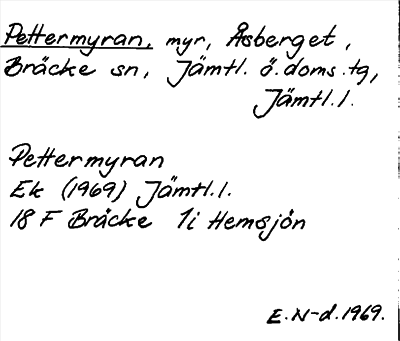 Pettermyran, myr, Åsberget,
Bräcke sn, Jämtl. ö. doms. tg,
Jämtl. l.
Pettermyran
Ek (1969) Jämtl. l.
18 F Bräcke 1i Hemsjön
E. N-d. 1969.